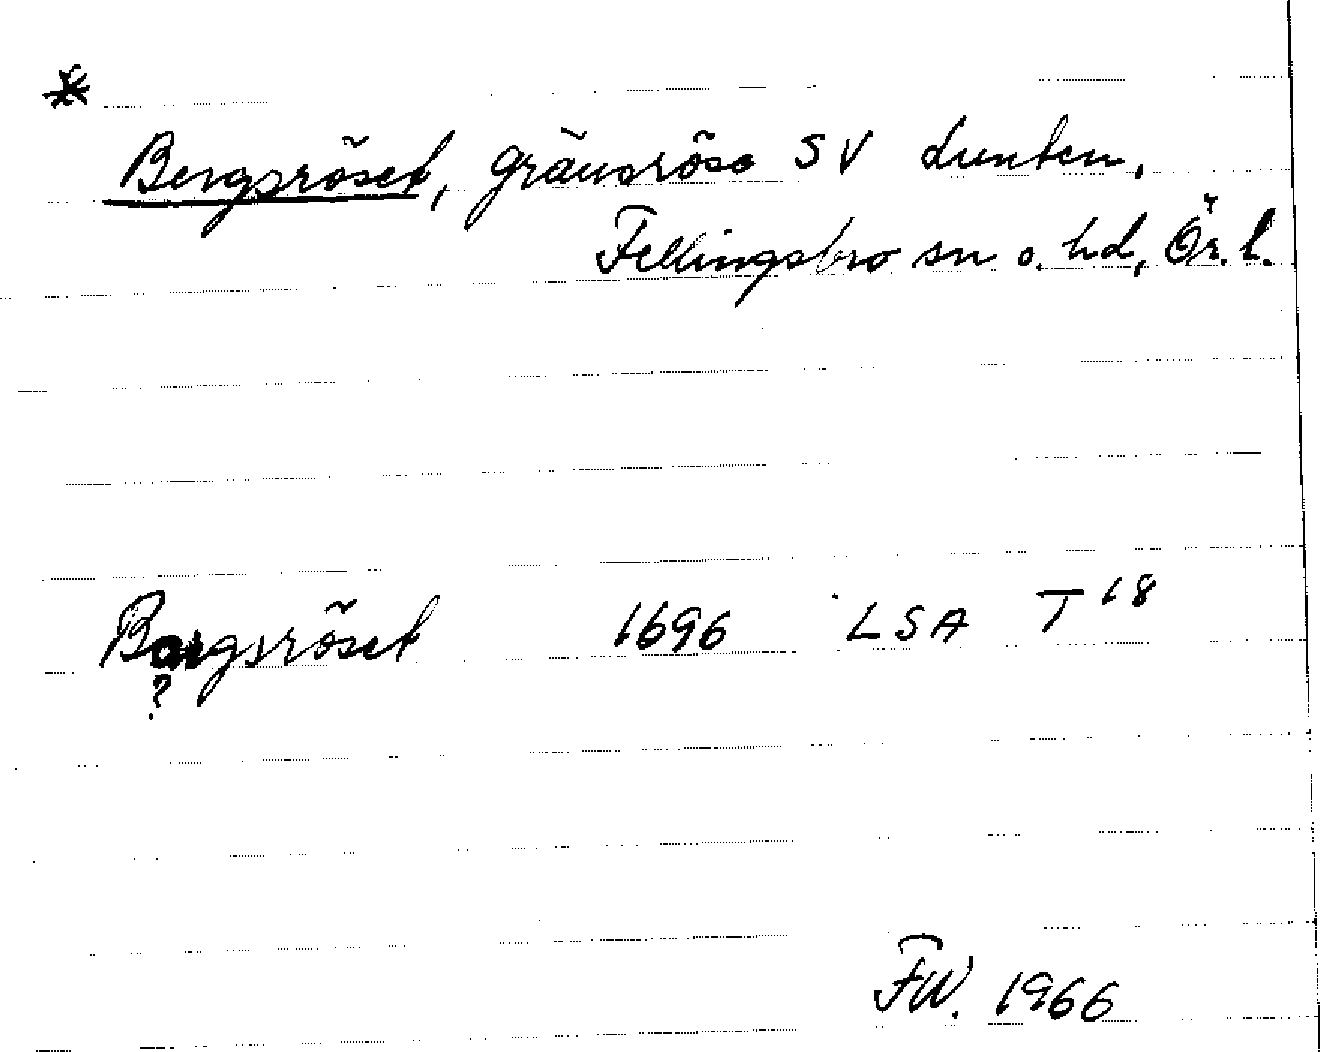 *
Bergsröset, gränsröse SV Lunten,
Fellingsbro sn o. hd, Ör. l.
Borgsröset 1696 LSA T 18
?
FW. 1966